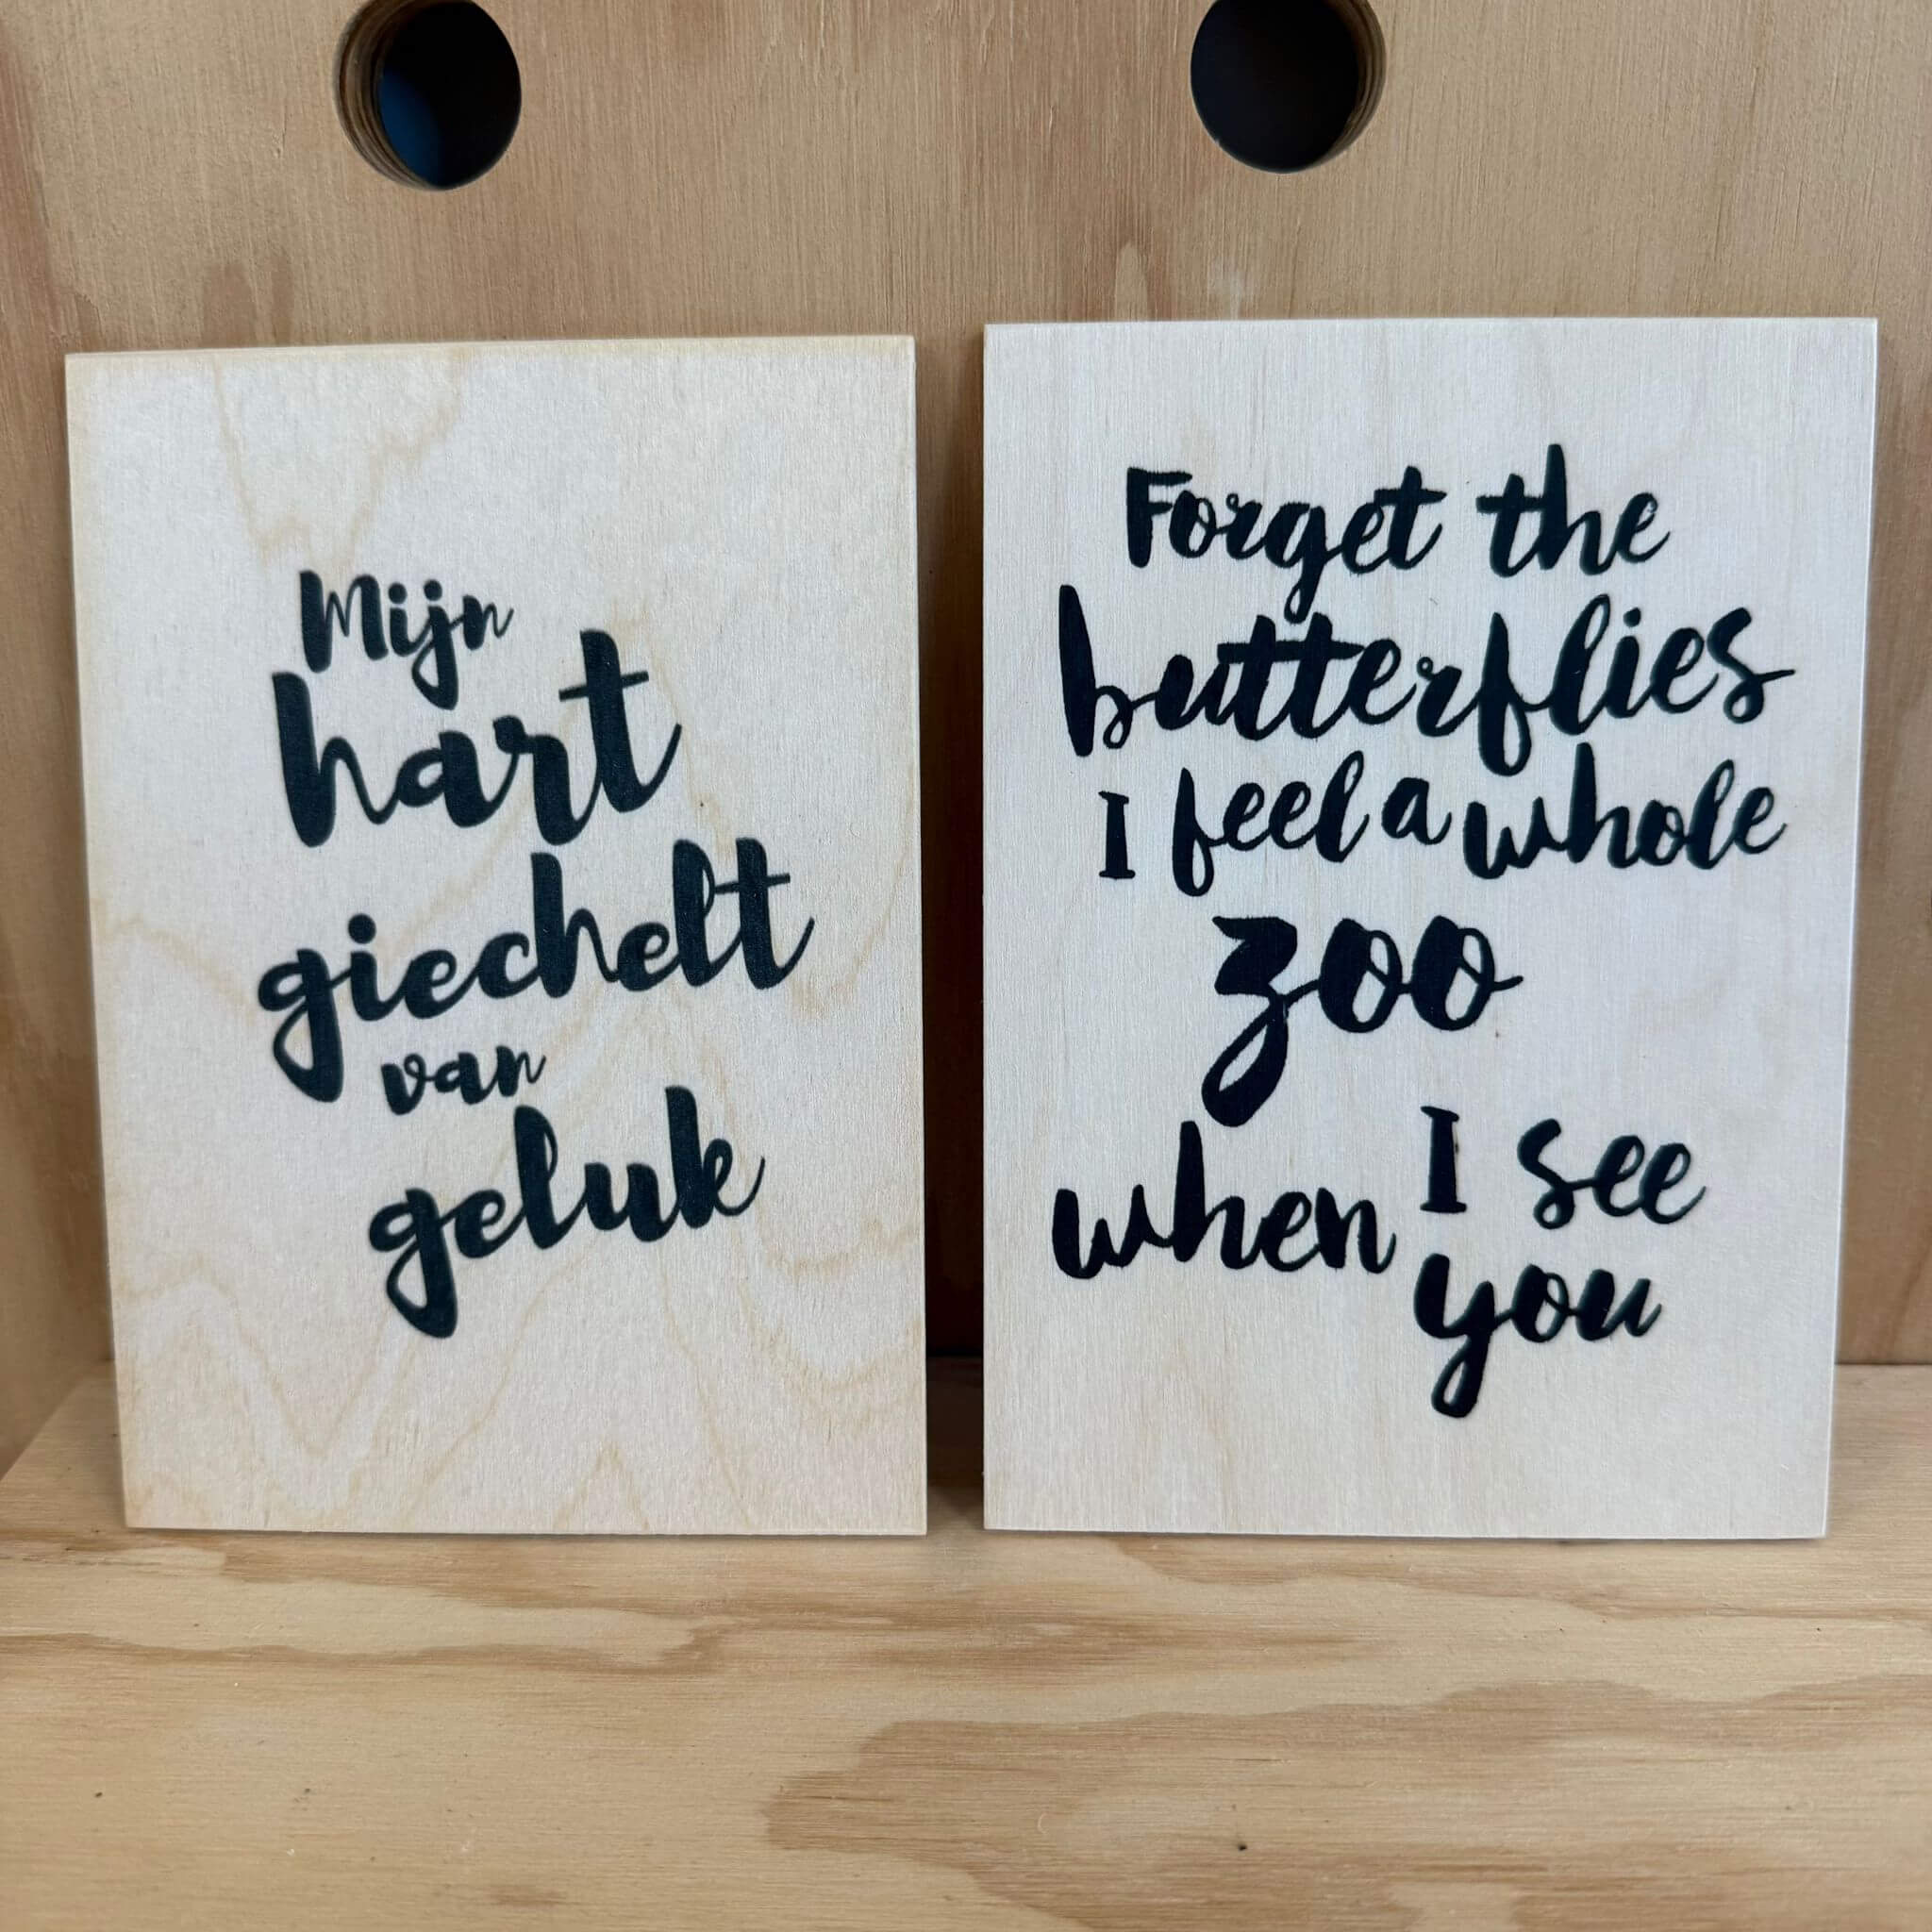 Mijn
hart
giechelt
van
geluk
Forget the
butterflies
I feel a whole
zoo
when I see
you